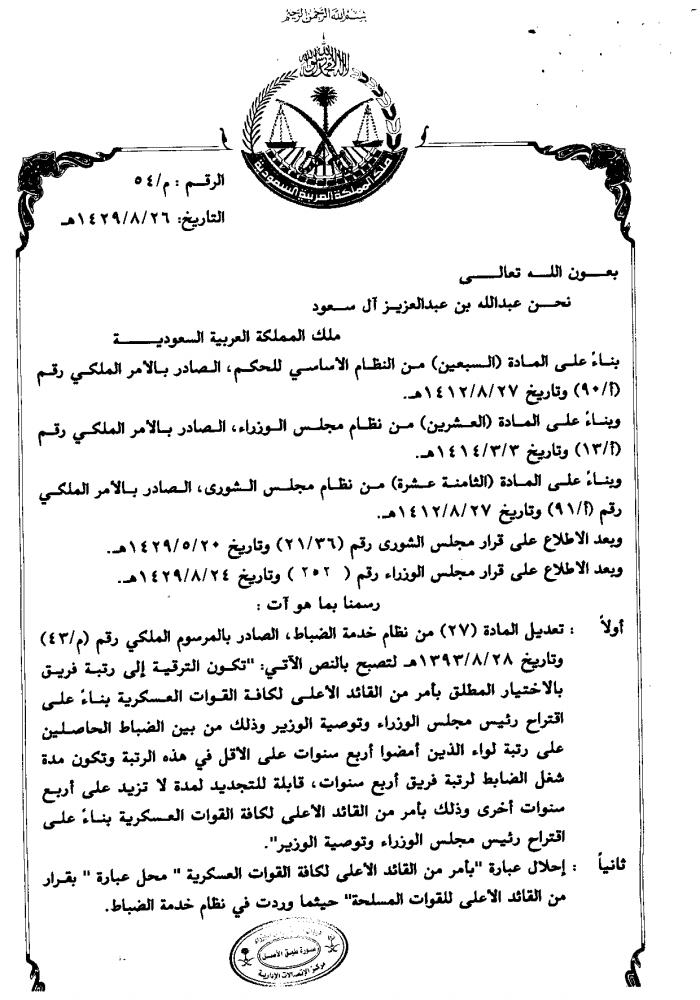 بسم الله الرحمن الرحيم
لا إله إلا الله محمد رسول الله
ملك المملكة العربية السعودية
الرقم : م/٥٤
التاريخ: ١٤٢٩/٨/٢٦هـ
بعــون اللــه تعالــى
نحـن عبدالله بن عبدالعزيز آل سعود
ملك المملكة العربية السعوديــة
بناءً على المادة (السبعين) من النظام الأساسي للحكم، الصادر بالأمر الملكي رقم
(أ/٩٠) وتاريخ ١٤١٢/٨/٢٧هـ.
وبناءً على المادة (العشرين) من نظام مجلس الوزراء، الصادر بالأمر الملكي رقم
(أ/١٣) وتاريخ ١٤١٤/٣/٣هـ.
وبناءً على المادة (الثامنة عشرة) من نظام مجلس الشورى، الصادر بالأمر الملكي
رقم (أ/٩١) وتاريخ ١٤١٢/٨/٢٧هـ.
وبعد الاطلاع على قرار مجلس الشورى رقم (٢١/٣٦) وتاريخ ١٤٢٩/٥/٢٠هـ.
وبعد الاطلاع على قرار مجلس الوزراء رقم ( ٢٥٢ ) وتاريخ ١٤٢٩/٨/٢٤هـ.
رسمنا بما هو آت :
أولاً : تعديل المادة (٢٧) من نظام خدمة الضباط، الصادر بالمرسوم الملكي رقم (م/٤٣)
وتاريخ ١٣٩٣/٨/٢٨هـ لتصبح بالنص الآتي: "تكون الترقية إلى رتبة فريق
بالاختيار المطلق بأمر من القائد الأعلى لكافة القوات العسكرية بناءً على
اقتراح رئيس مجلس الوزراء وتوصية الوزير وذلك من بين الضباط الحاصلين
على رتبة لواء الذين أمضوا أربع سنوات على الأقل في هذه الرتبة وتكون مدة
شغل الضابط لرتبة فريق أربع سنوات، قابلة للتجديد لمدة لا تزيد على أربع
سنوات أخرى وذلك بأمر من القائد الأعلى لكافة القوات العسكرية بناءً على
اقتراح رئيس مجلس الوزراء وتوصية الوزير".
ثانياً : إحلال عبارة "بأمر من القائد الأعلى لكافة القوات العسكرية " محل عبارة " بقرار
من القائد الأعلى للقوات المسلحة" حيثما وردت في نظام خدمة الضباط.
صورة طبق الأصل
مركز الاتصالات الإدارية